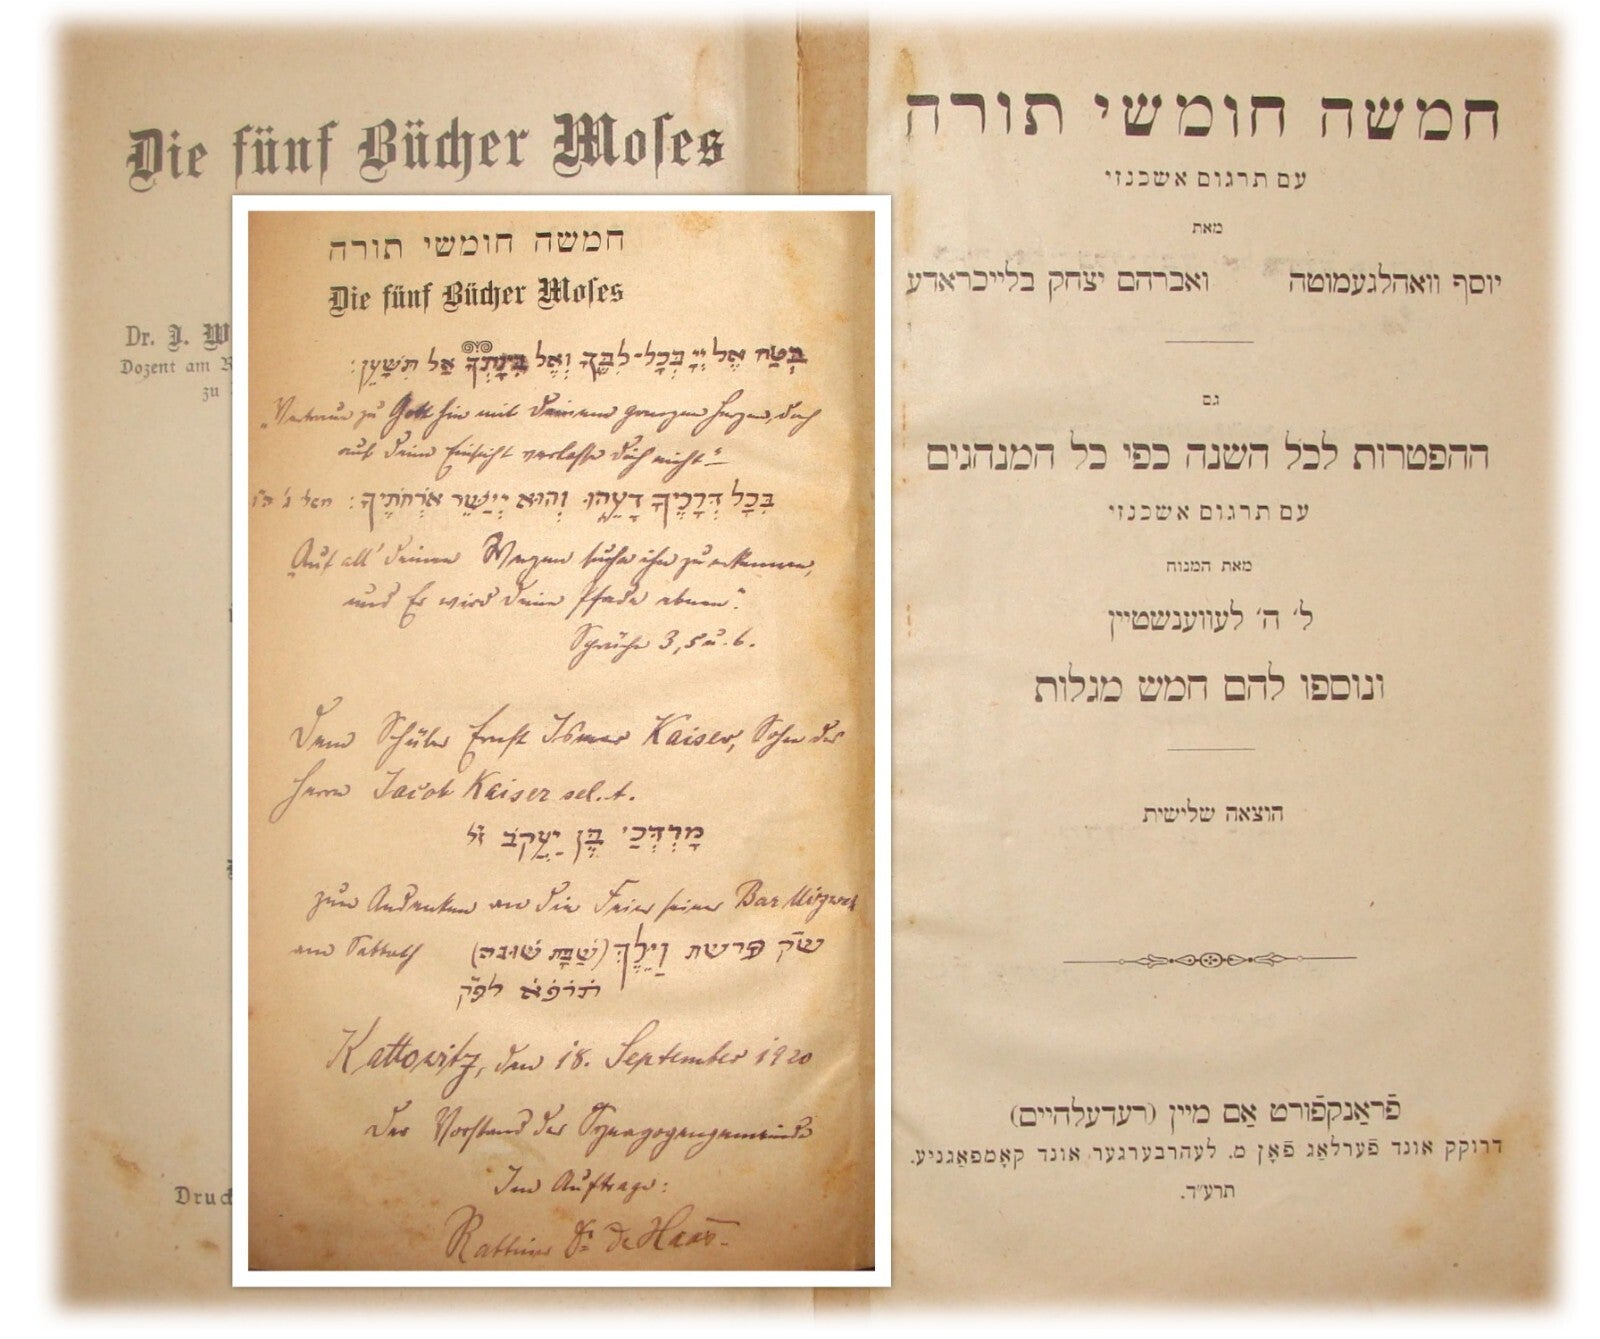 Die fünf Bücher Moses
Dr. J. W
Dozent am R
zu
Druc
חמשה חומשי תורה
Die fünf Bücher Moses
בְּטַח אֶל יְיָ בְּכָל-לִבֶּךָ וְאֶל בִּינָתְךָ אַל תִּשָּׁעֵן:
„Vertraue zu Gott hin mit deinem ganzen Herzen, doch
auf deine Einsicht verlasse dich nicht“
בְּכָל דְּרָכֶיךָ דָעֵהוּ וְהוּא יְיַשֵּׁר אֹרְחֹתֶיךָ:
„Auf all' deinen Wegen suche ihn zu erkennen,
und Er wird deine Pfade ebnen“.
Sprüche 3, 5 u. 6.
Dem Schüler Ernst Ismar Kaiser, Sohn des
Herrn Jacob Kaiser sel. A.
מָרְדְּכַי בֶּן יַעֲקֹב ז״ל
zum Andenken an die Feier seiner Bar Mizwah
am Sabbath
ש״ק פרשת וַיֵּלֶךְ (שַׁבַּת שׁוּבָה)
תרפא לפ״ק
Kattowitz, den 18. September 1920
Der Vorstand der Synagogengemeinde
Im Auftrage:
Rabbiner Dr. de Haas.
חמשה חומשי תורה
עם תרגום אשכנזי
מאת
יוסף וואהלגעמוטה ואברהם יצחק בלייכראדע
גם
ההפטרות לכל השנה כפי כל המנהגים
עם תרגום אשכנזי
מאת המנוח
ל׳ ה׳ לעווענשטיין
ונוספו להם חמש מגלות
הוצאה שלישית
פֿראַנקפֿורט אַם מיין (רעדעלהיים)
דרוקק אונד פֿערלאַג פֿאָן מ. לעהרבערגער אונד קאָמפּאַגניע.
תרע״ד.